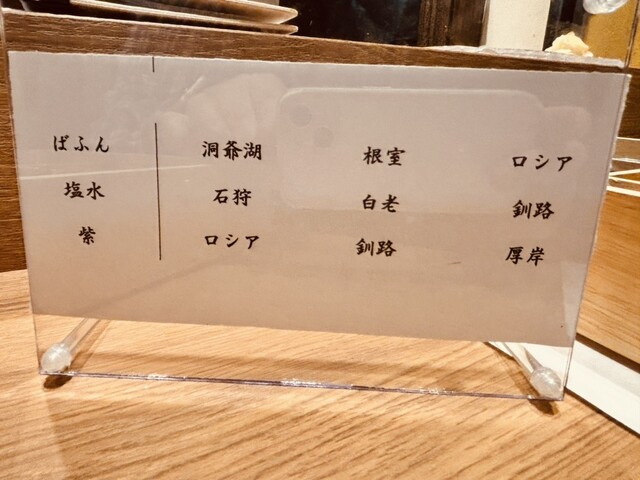 ばふん 洞爺湖 根室 ロシア
塩水 石狩 白老 釧路
紫 ロシア 釧路 厚岸